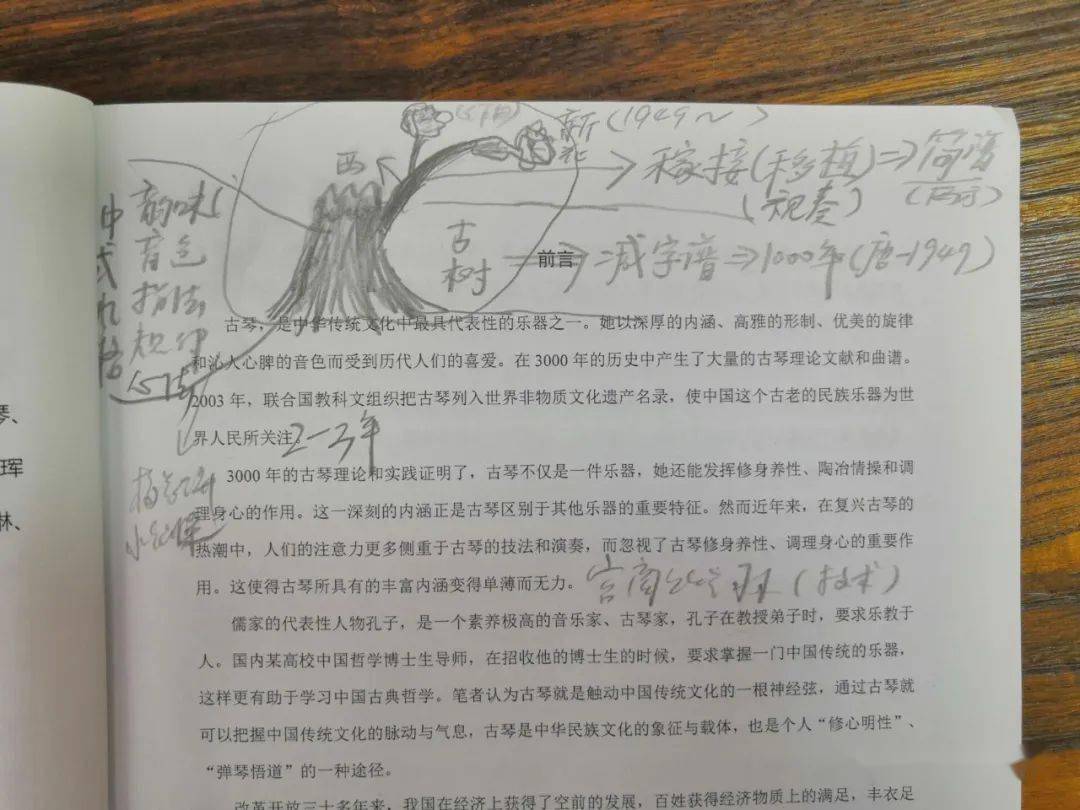 新(1949~)
西
嫁接(移植)⇒简谱
(视奏)
韵味
中式
音色
古树
前言
减字谱⇒1000年(唐-1949)
指法
古琴，是中华传统文化中最具代表性的乐器之一。她以深厚的内涵、高雅的形制、优美的旋律
和沁人心脾的音色而受到历代人们的喜爱。在 3000 年的历史中产生了大量的古琴理论文献和曲谱。
2003 年，联合国教科文组织把古琴列入世界非物质文化遗产名录，使中国这个古老的民族乐器为世
界人民所关注。
2-3年
3000 年的古琴理论和实践证明了，古琴不仅是一件乐器，她还能发挥修身养性、陶冶情操和调
理身心的作用。这一深刻的内涵正是古琴区别于其他乐器的重要特征。然而近年来，在复兴古琴的
热潮中，人们的注意力更多侧重于古琴的技法和演奏，而忽视了古琴修身养性、调理身心的重要作
用。这使得古琴所具有的丰富内涵变得单薄而无力。
宫商 (技术)
儒家的代表性人物孔子，是一个素养极高的音乐家、古琴家，孔子在教授弟子时，要求乐教于
人。国内某高校中国哲学博士生导师，在招收他的博士生的时候，要求掌握一门中国传统的乐器，
这样更有助于学习中国古典哲学。笔者认为古琴就是触动中国传统文化的一根神经弦，通过古琴就
可以把握中国传统文化的脉动与气息，古琴是中华民族文化的象征与载体，也是个人“修心明性”、
“弹琴悟道”的一种途径。
改革开放三十多年来，我国在经济上获得了空前的发展，百姓获得经济物质上的满足，丰衣足
琴、
珲
林、